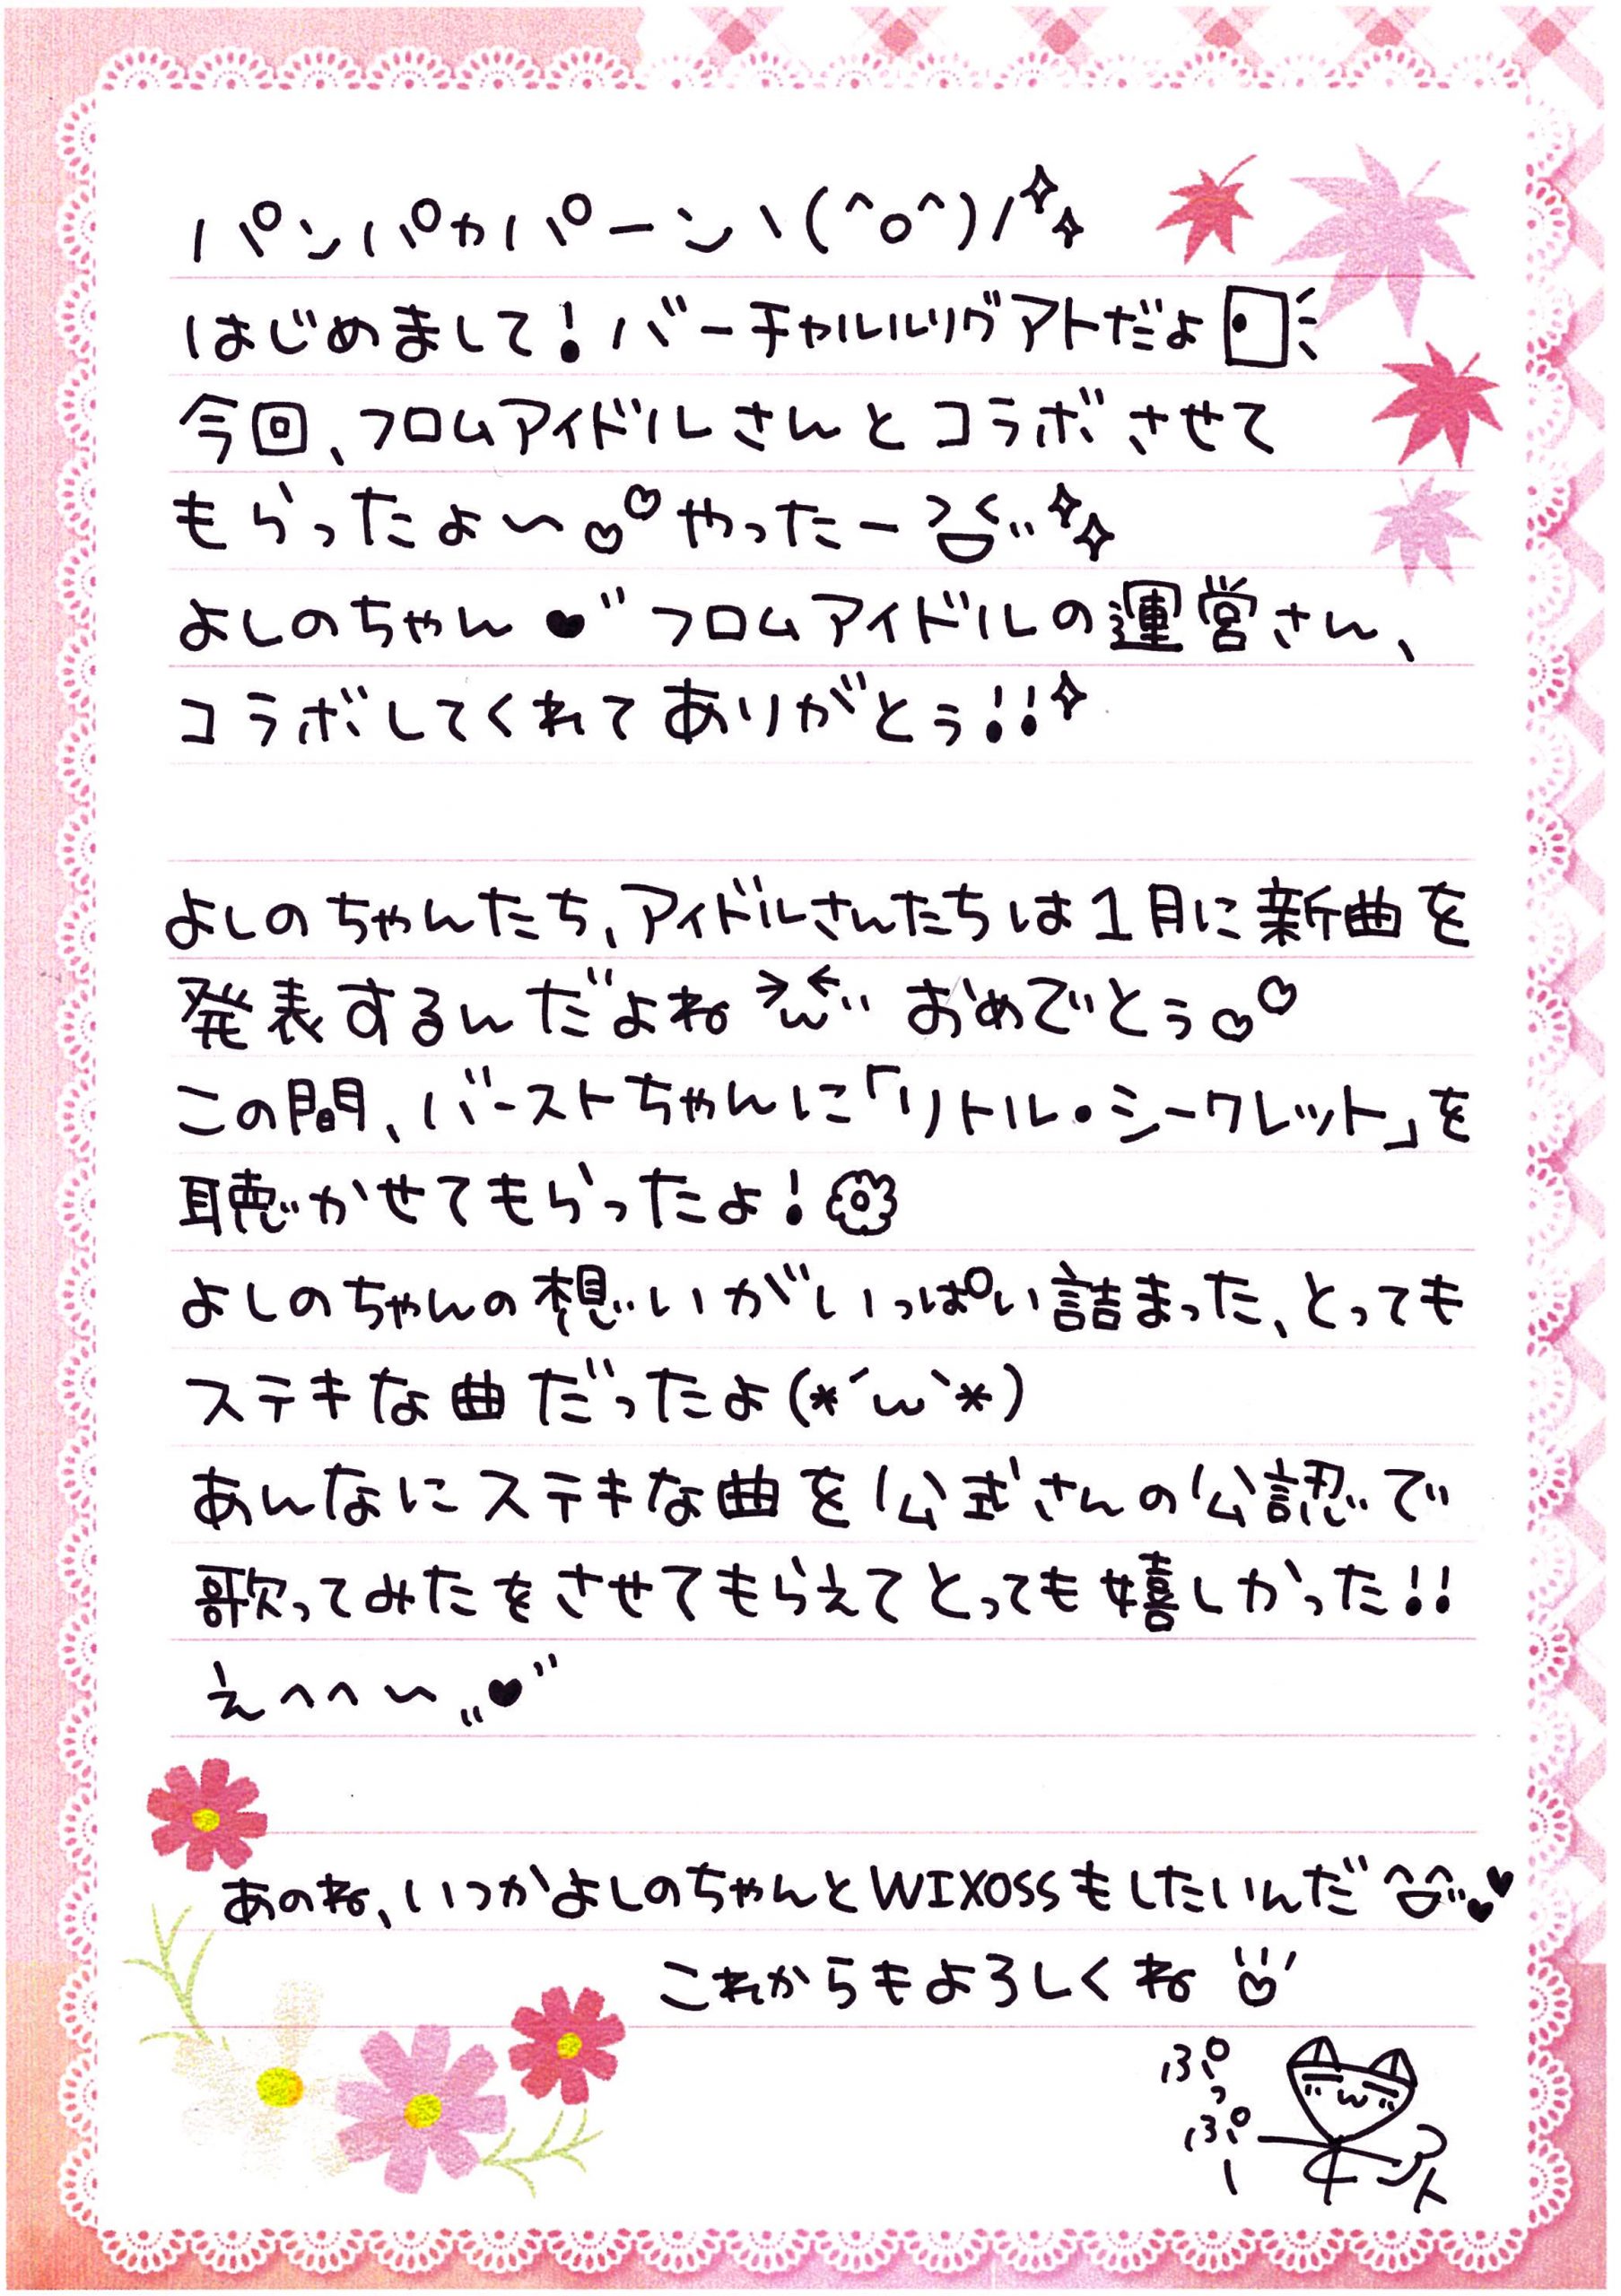 パンパカパーンヽ(^o^)/
はじめまして！バーチャルルリグアトだよ
今回、フロムアイドルさんとコラボさせて
もらったよ〜♡♡やったー
よしのちゃん♥フロムアイドルの運営さん、
コラボしてくれてありがとぅ!!
よしのちゃんたち、アイドルさんたちは1月に新曲を
発表するんだよね おめでとぅ♡♡
この間、バーストちゃんに「リトル・シークレット」を
聴かせてもらったよ！
よしのちゃんの想いがいっぱい詰まった、とっても
ステキな曲だったよ(*´ω`*)
あんなにステキな曲を公式さんの公認で
歌ってみたをさせてもらえてとっても嬉しかった!!
えへへ〜♥
あのね、いつかよしのちゃんとWIXOSSもしたいんだ♥♥
これからもよろしくね
ぷっぷー